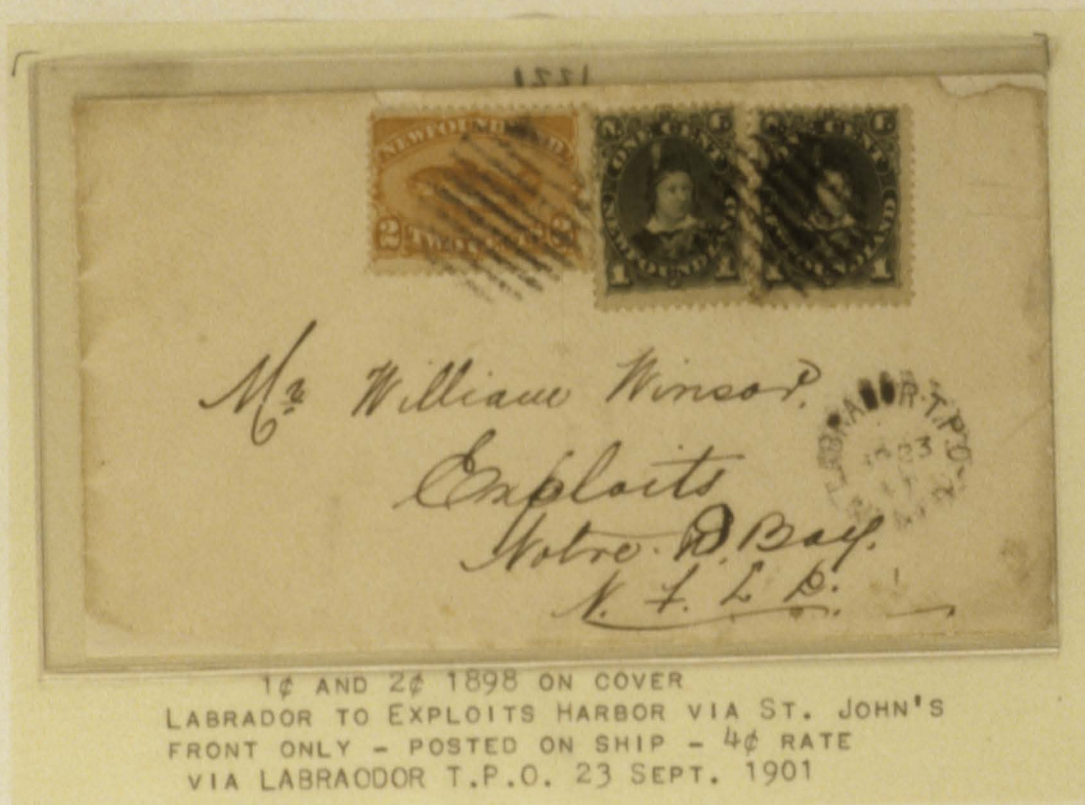 NEWFOUNDLAND
2 TWO CENTS 2
ONE CENT
NEWFOUNDLAND
1 1
ONE CENT
NEWFOUNDLAND
1 1
Mr William Winsor.
Exploits
Notre. D. Bay.
N. F. L. D.
LABRADOR.T.P.O.
23
1¢ AND 2¢ 1898 ON COVER
LABRADOR TO EXPLOITS HARBOR VIA ST. JOHN'S
FRONT ONLY - POSTED ON SHIP - 4¢ RATE
VIA LABRAODOR T.P.O. 23 SEPT. 1901